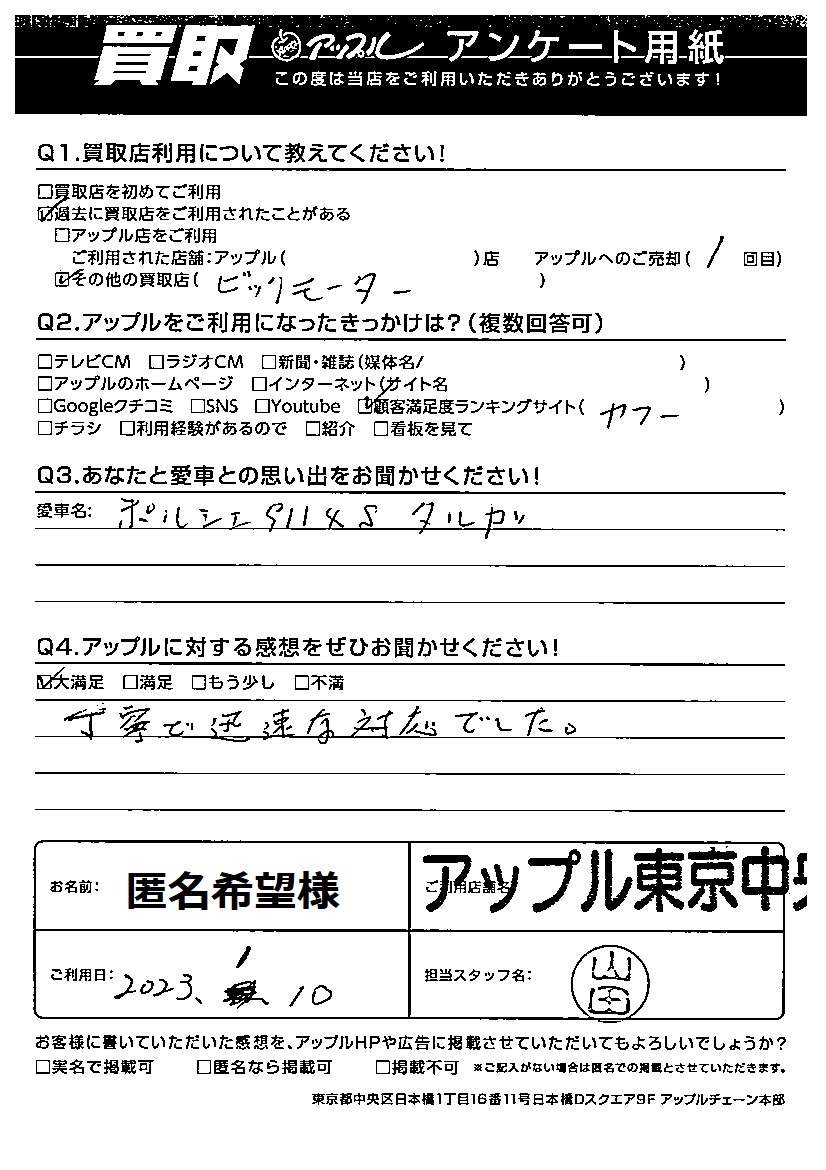 買取 アップル アンケート用紙
この度は当店をご利用いただきありがとうございます!
Q1.買取店利用について教えてください!
□買取店を初めてご利用
☑過去に買取店をご利用されたことがある
□アップル店をご利用
ご利用された店舗:アップル( )店 アップルへのご売却( 1 回目)
☑その他の買取店( ビックモーター )
Q2.アップルをご利用になったきっかけは?(複数回答可)
□テレビCM □ラジオCM □新聞・雑誌(媒体名/ )
□アップルのホームページ □インターネット(サイト名 )
□Googleクチコミ □SNS □Youtube ☑顧客満足度ランキングサイト( ヤフー )
□チラシ □利用経験があるので □紹介 □看板を見て
Q3.あなたと愛車との思い出をお聞かせください!
愛車名: ポルシェ911 4S タルガ
Q4.アップルに対する感想をぜひお聞かせください!
☑大満足 □満足 □もう少し □不満
丁寧で迅速な対応でした。
お名前: 匿名希望様
ご利用店舗名 アップル東京中央
ご利用日: 2023、1、10
担当スタッフ名: 山田
お客様に書いていただいた感想を、アップルHPや広告に掲載させていただいてもよろしいでしょうか?
□実名で掲載可 □匿名なら掲載可 □掲載不可 ※ご記入がない場合は匿名での掲載とさせていただきます。
東京都中央区日本橋1丁目16番11号日本橋Dスクエア9F アップルチェーン本部